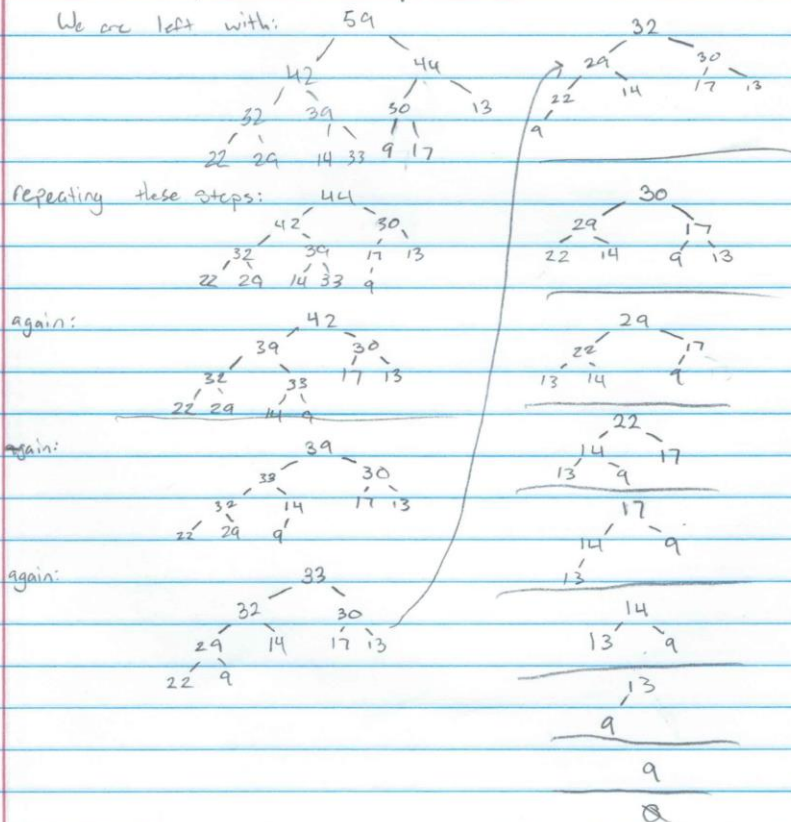 We are left with:
59
42 44
32 39 30 13
22 29 14 33 9 17
repeating these steps:
44
42 30
32 39 17 13
22 29 14 33 9
again:
42
39 30
32 33 17 13
22 29 14 9
again:
39
33 30
32 14 17 13
22 29 9
again:
33
32 30
29 14 17 13
22 9
32
29 30
22 14 17 13
9
30
29 17
22 14 9 13
29
22 17
13 14 9
22
14 17
13 9
17
14 9
13
14
13 9
13
9
9